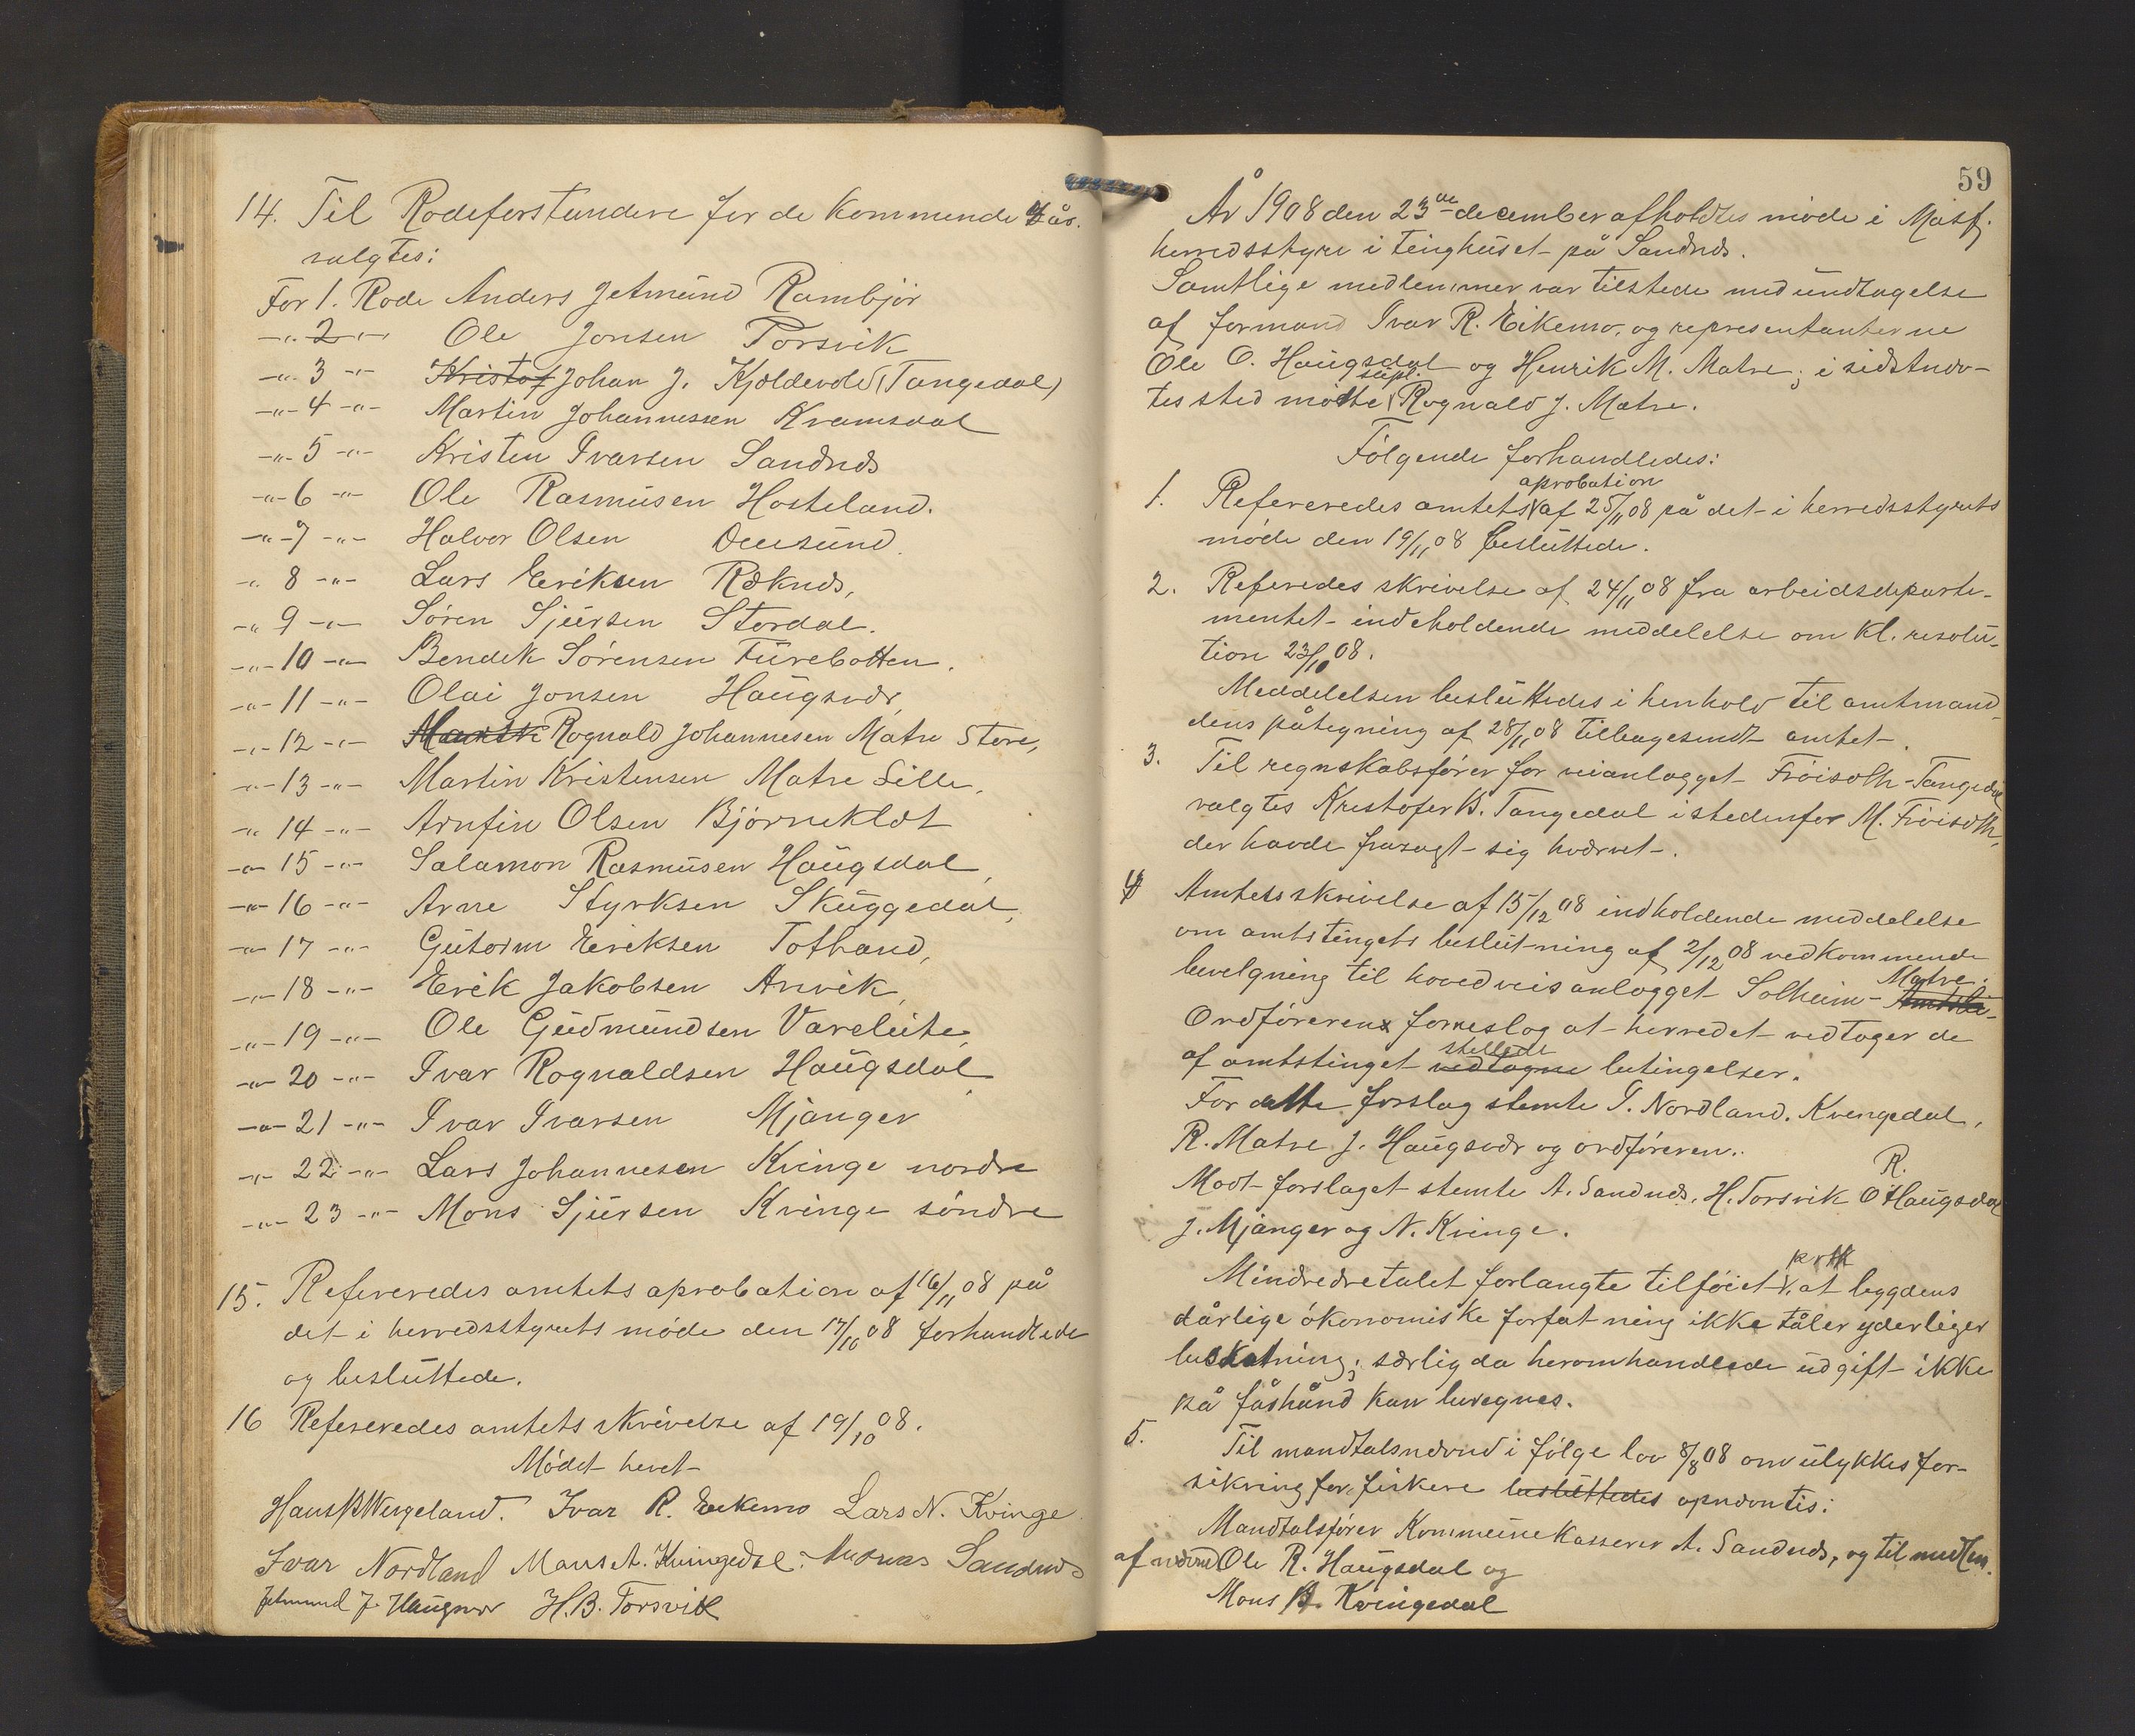 14. Til Rodeforstandere for de kommende år.
valgtes:
For 1. Rode Anders Jetmund Rambjør
-"- 2 -"- Ole Jonsen Torsvik
-"- 3 -"- Kristof Johan J. Kjoldevold (Tangedal)
-"- 4 -"- Martin Johannessen Kramsdal
-"- 5 -"- Kristen Ivarsen Sandnæs
-"- 6 -"- Ole Rasmusen Hosteland.
-"- 7 -"- Halvor Olsen
-"- 8 -"- Lars EriksenRæknæs,
-"- 9 -"- Sören Sjursen Stordal.
-"- 10 -"- Bendik Sörensen Furebotten.
-"- 11 -"- Olai Jonsen Haugsvær,
-"- 12 -"- Rognald Johannesen Matre Store,
-"- 13 -"- Martin Kristensen Matre Lille,
-"- 14 -"- Arnfin Olsen Björneklæt
-"- 15 -"- Salamon Rasmusen Haugsdal,
-"- 16 -"- Arne Styrksen Skuggedal,
-"- 17 -"- Gutorm Eriksen Totland,
-"- 18 -"- Erik Jakobsen Anvik,
-"- 19 -"- Ole Gudmundsen Vareluhe,
-"- 20 -"- Ivar Rognaldsen Haugsdal
-"- 21 -"- Ivar Ivarsen Mjanger
-"- 22 -"- Lars Johannesen Kvinge nordre
-"- 23 -"- Mons Sjursen Kvinge söndre
15. Refereredes amtets aprobation af 16/11 08 på
det i herredsstyrets möde den 17/10 08 forhandlede
og besluttede.
16 Refereredes amtets skrivelse af 19/10 08.
Mödet hevet
Hans B Wergeland. Ivar R. Eikemo Lars N. Kvinge
Ivar Nordland Mons A. Kvingedal. Andreas Sandnæs
Jetmund J. Haugsvær H.B. Torsvik
59
År 1908 den 23de december afholdtes möde i Masf.
herredsstyre i tinghuset på Sandnæs.
Samtlige medlemmer var tilstede med undtagelse
af formand Ivar R. Eikemo, og representanterne
Ole O. Haugsdal og Henrik M. Matre; i sidstnæv-
tes sted mötte supl. Rognald J. Matre.
Fölgende forhandledes:
1. Refereredes amtets aprobation af 25/11 08 på det i herredsstyrets
möde den 19/11 08 besluttede.
2. Referedes skrivelse af 24/11 08 fra arbeidsdeparte-
mentet indeholdende meddelelse om kl. resolu-
tion 23/10 08.
Meddelelsen besluttedes i henhold til amtmand-
dens påtegning af 28/11 08 tilbagesendt amtet.
3. Til regnskabsförer for veianlægget Fröiseth-Tangedal
valgtes Kristofer B. Tangedal istedenfor M. Fröiseth,
der havde frasagt sig hvervet.
4 Amtets skrivelse af 15/12 08 indholdende meddelelse
om amtstingets beslutning af 2/12 08 vedkommende
bevilgning til hovedveisanlægget Solheim - Matre.
Ordföreren foreslog at herredet vedtager de
af amtstinget vedtagne stillede betingelser.
For dette forslag stemte I. Nordland. Kvingedal,
R. Matre J. Haugsvær og ordföreren.
Mod forslaget stemte A. Sandnæs, H. Torsvik O R. Haugsdal
J. Mjanger og N. Kvinge.
Mindredretalet forlangte tilföiet prtk at bygdens
dårlige ökonomiske forfatning ikke tåler yderliger
beskatning; særlig da heromhandlede udgift ikke
på fåshånd kan beregnes.
5. Til mandtalsnævnd i fölge lov 8/8 08 om ulykkesfor-
sikring for fiskere besluttedes opnævntes:
Mandtalsförer Kommunekasserer A. Sandnæs, og til medlem.
af nævnd Ole R. Haugsdal og
Mons A. Kvingedal